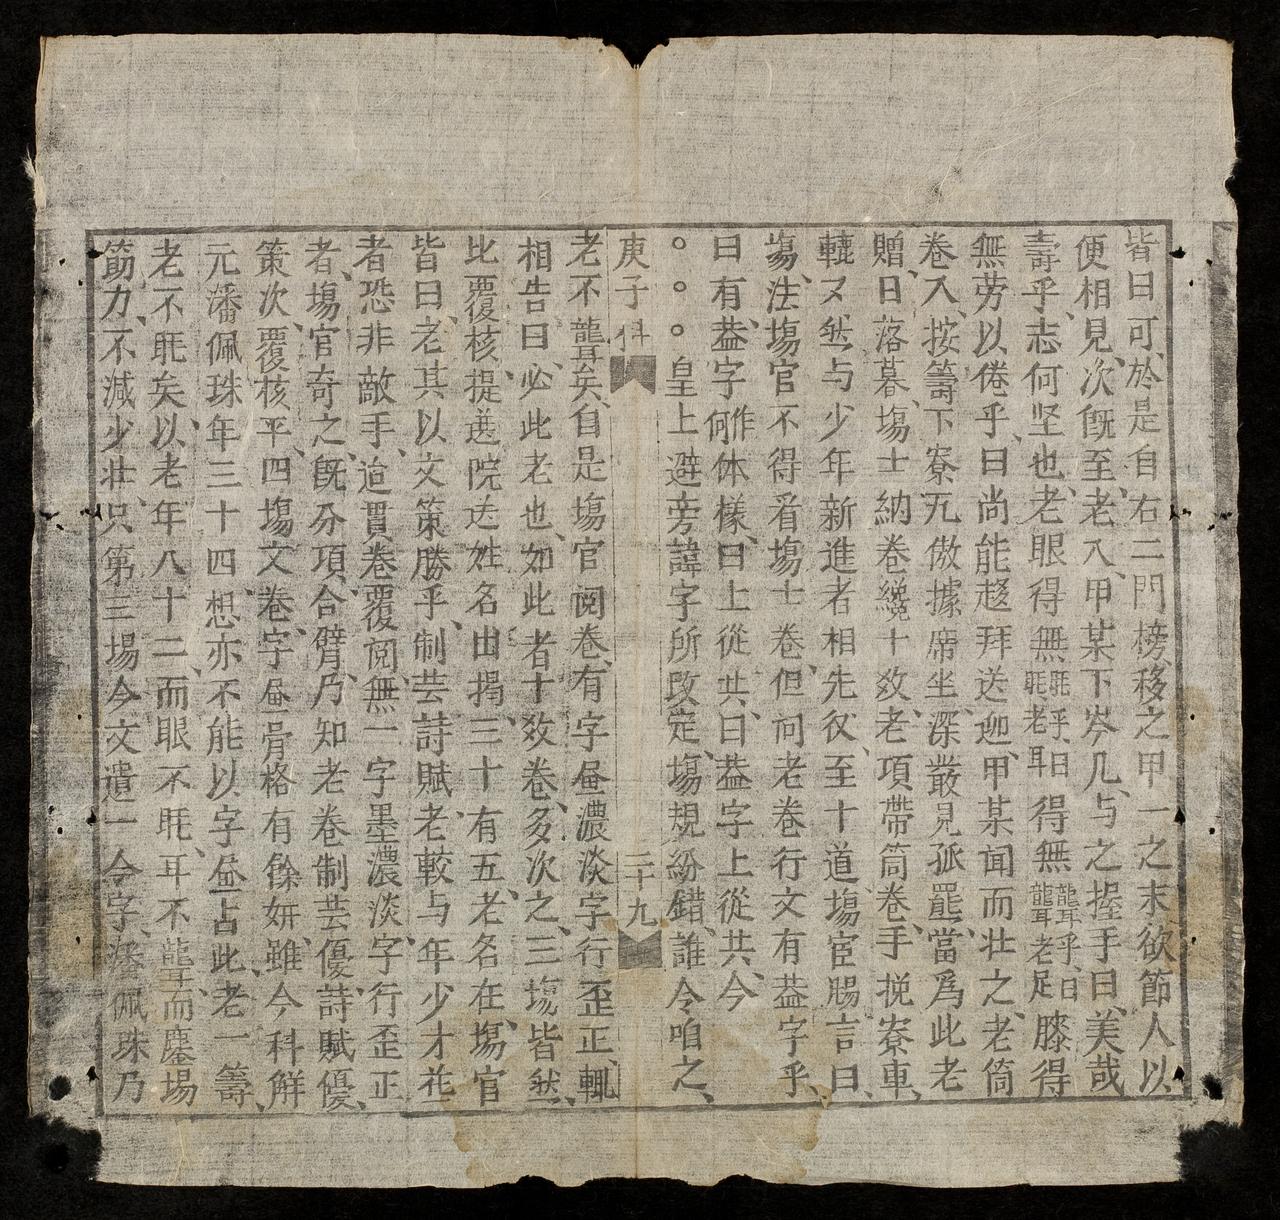 皆曰可、於是自右二門榜、移之甲一之末、欲節人以
便相見、次旣至、老入、甲某下岑几、与之握手曰、美哉
壽乎、志何坚也、老眼得無眊乎、曰眊老耳得無聾乎、曰聾老足膝得
無劳以倦乎、曰尚能趍拜送迎、甲某闻而壮之、老筒
卷入、按籌下寮、兀傲據席坐、深叢見孤羆、當爲此老
贈、日落暮、塲士納卷纔十效、老項帶筒卷、手挽寮車、
轆又、然与少年新進者相先后、至十道、塲官賜言曰、
塲、法塲官不得看塲士卷、但问老卷行文有益字乎、
曰有、益字作何体樣、曰上從共、曰益字上從共、今
○○○皇上避旁諱字所改定、塲規紛錯、誰令咱之、
庚子科 二十九
老不聾矣、自是塲官阅卷、有字畫濃淡字行歪正、輒
相告曰、必此老也、如此者十效卷、多次之、三塲皆然、
比覆核、提送院送姓名出揭、三十有五、老名在、塲官
皆曰、老其以文策勝乎、制芸詩賦、老較与年少才花
者恐非敵手、追貫卷覆阅、無一字墨濃淡、字行歪正
者、塲官奇之、旣分項合臂、乃知老卷制芸優、詩賦優、
策次、覆核平、四塲文卷、字畫骨格有餘妍、雖今科觧
元潘佩珠年三十四、想亦不能以字畫占此、老一籌、
老不眊矣、以老年八十二、而眼不眊、耳不聾、而鏖場
筋力、不減少壮、只第三場今文遺一令字、潘佩珠乃